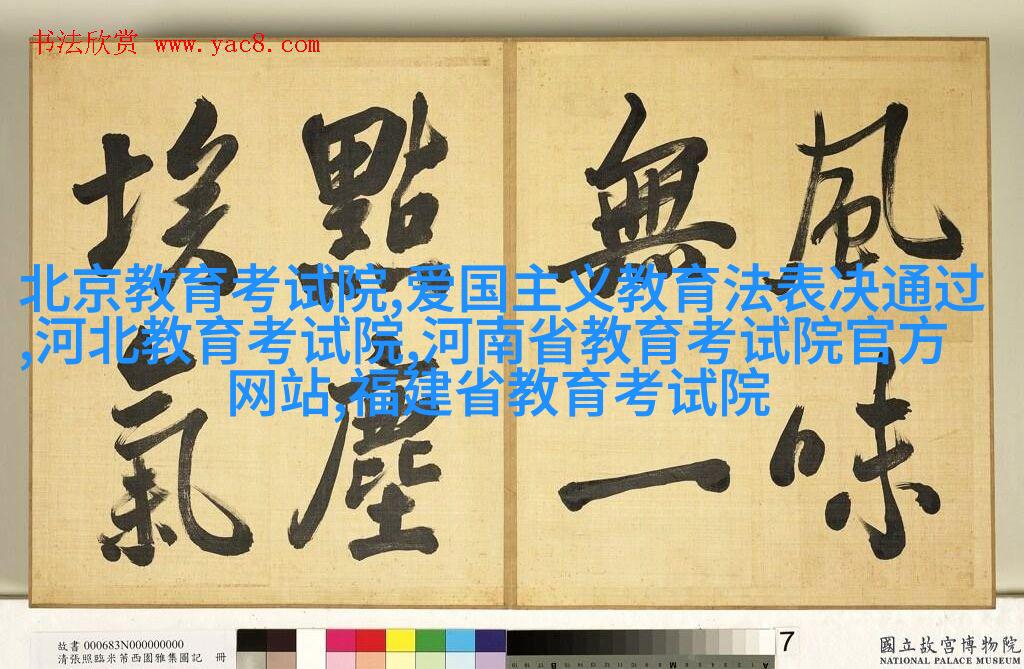 书法欣赏 www.yac8.com
風味
無一
點塵
埃氣
北京教育考试院,爱国主义教育法表决通过
,河北教育考试院,河南省教育考试院官方
网站,福建省教育考试院
故書 000683N000000000
清張照臨米芾西園雅集圖記 冊
7
國立故宮博物院
NATIONAL PALACE MUSEUM